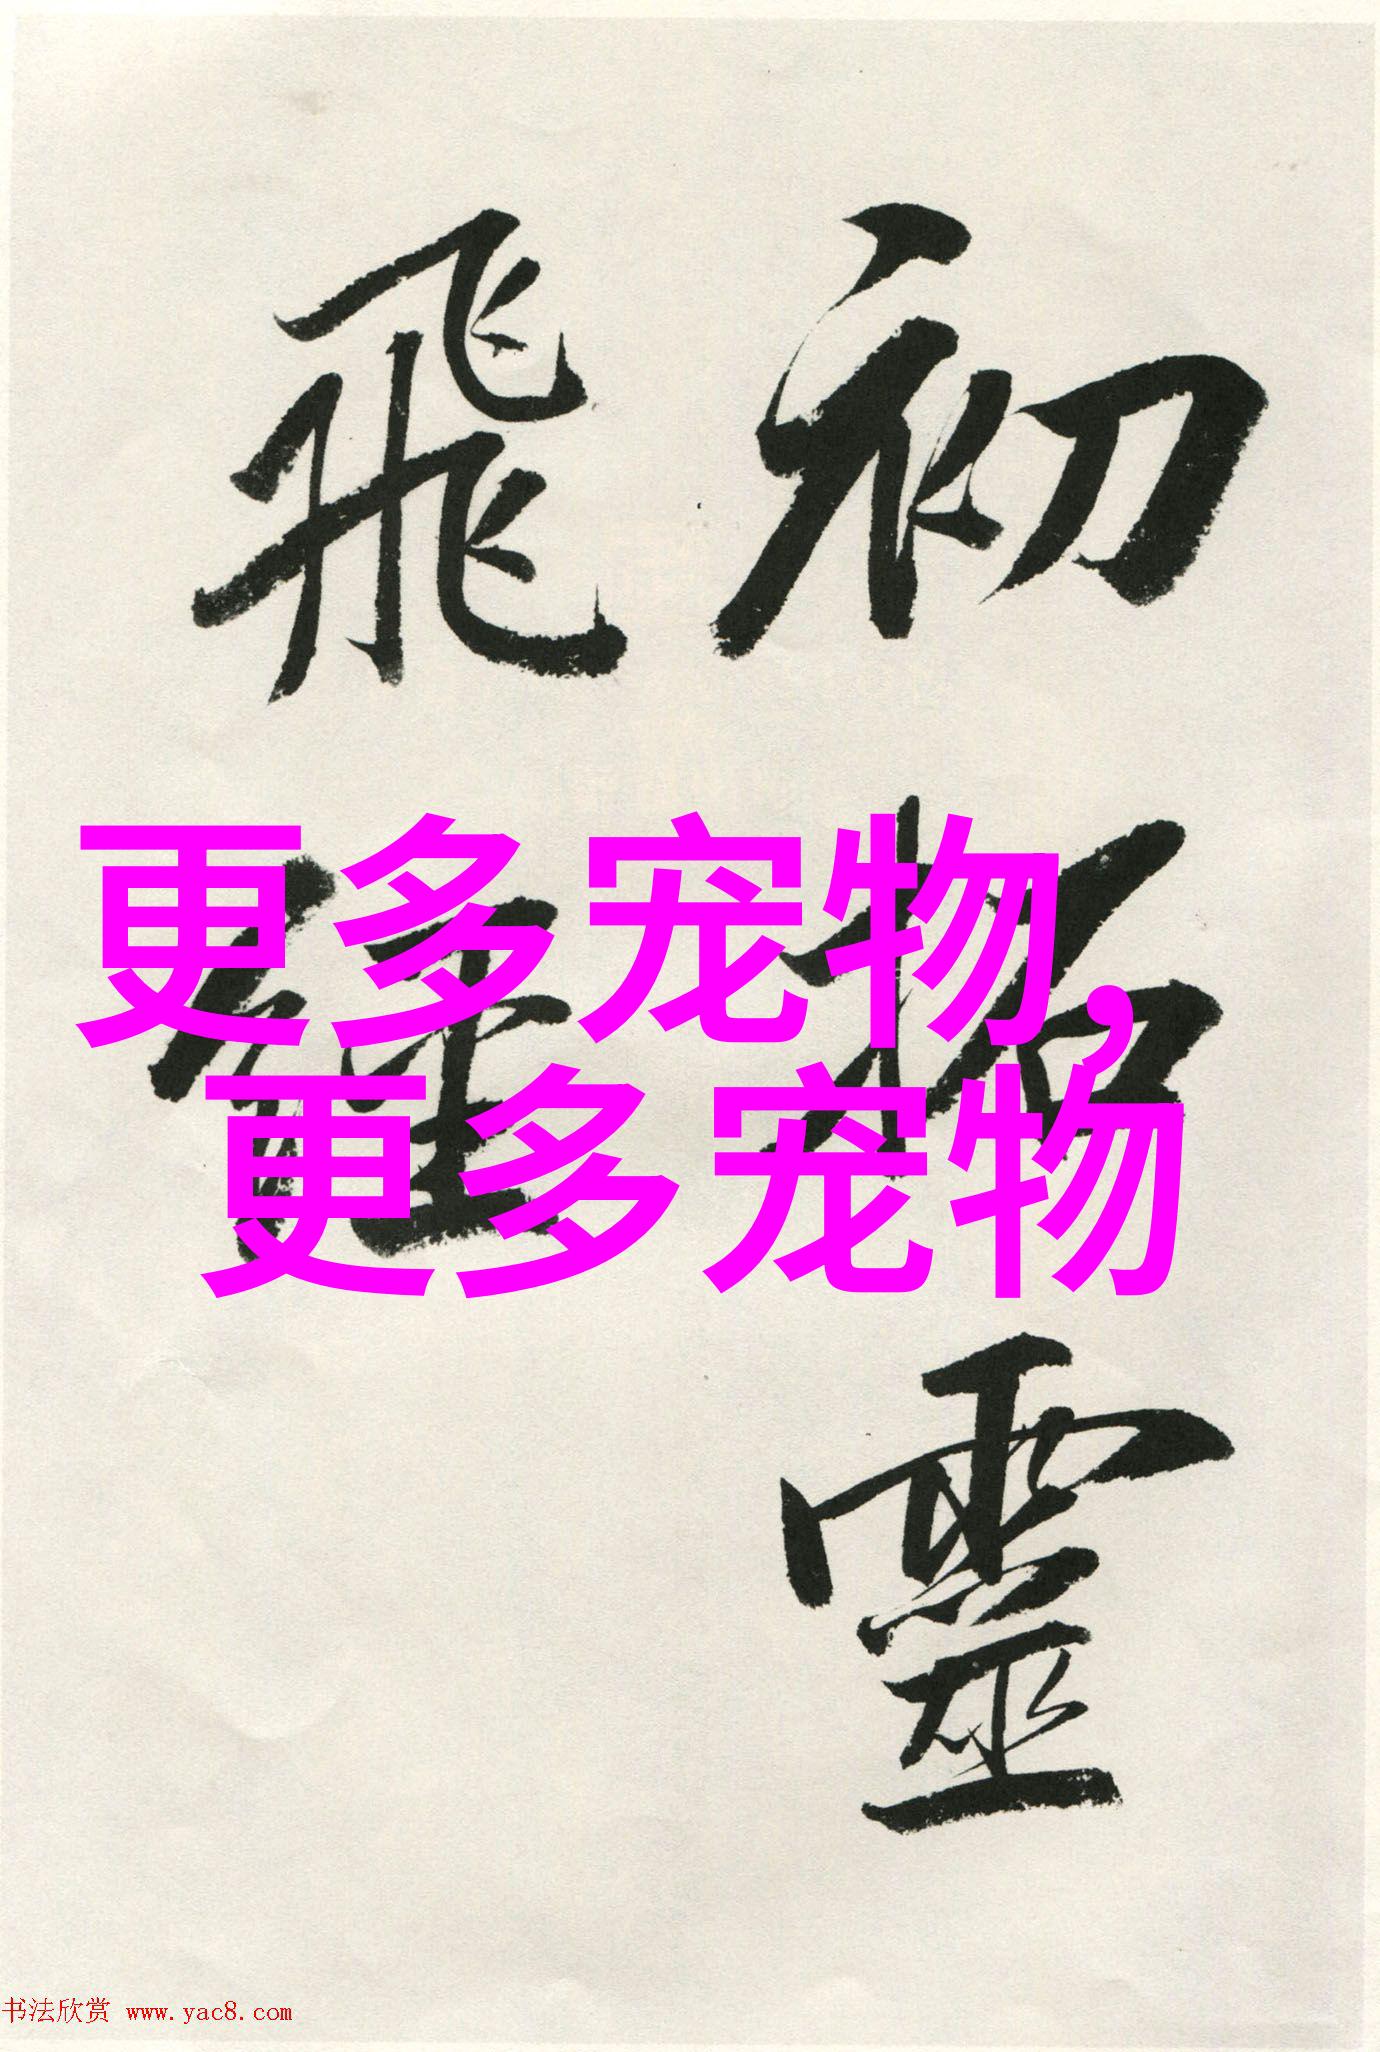 初拓靈
飛經
更多宠物,
更多宠物
书法欣赏 www.yac8.com